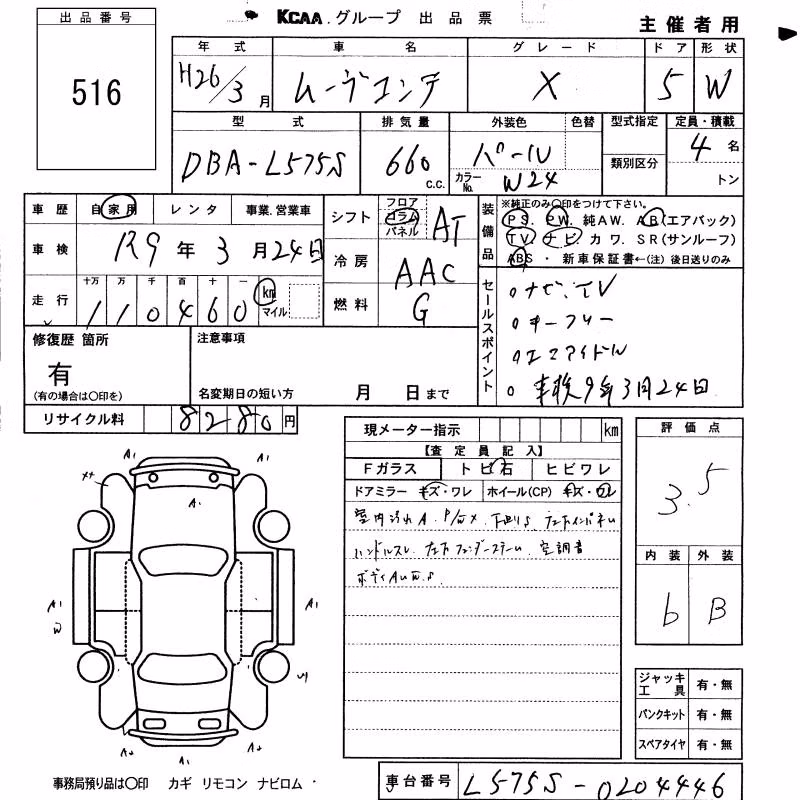 出品番号
516
KCAA グループ 出品票
主催者用
年式 車名 グレード ドア 形状
H26/3月 ムーヴコンテ X 5 W
型式 排気量 外装色 色替 型式指定 定員・積載
DBA-L575S 660 c.c. パール 類別区分 4名
カラーNo. W24 トン
車歴 自家用 レンタ 事業.営業車
車検 R9年3月24日
走行 十万 万 千 百 十 一
110460 km マイル
シフト フロア コラム パネル AT
冷房 AAC
燃料 G
装備品 ※純正のみ〇印をつけて下さい。
PS. PW. 純AW. AB(エアバック)
TV. ナビ. カワ. SR(サンルーフ)
ABS・新車保証書←(注)後日送りのみ
セールスポイント
ナビ、TV
キーフリー
エコアイドル
車検9年3月24日
修復歴 箇所
有
(有の場合は〇印を)
注意事項
名変期日の短い方 月 日まで
リサイクル料 8280円
現メーター指示 km
【査定員記入】
Fガラス トビ石 ヒビワレ
ドアミラー キズ・ワレ ホイール(CP) キズ・ワレ
室内汚れA. 下回りS.
ハンドルスレ. 空調音
評価点
3.5
内装 外装
6 B
ジャッキ工具 有・無
パンクキット 有・無
スペアタイヤ 有・無
A1
A1
A1
A1
A1
W
A2
A1
A2
事務局預り品は〇印 カギ リモコン ナビロム
車台番号 L575S-0204446